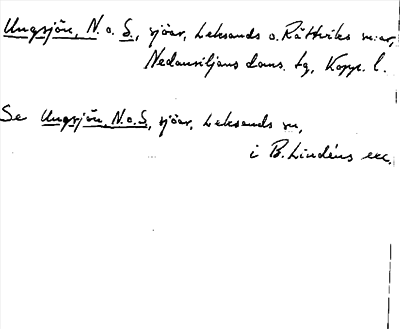 Ungsjön, N. o. S., sjöar, Leksands o. Rättviks sn:ar,
Nedansiljans doms. tg, Kopp. l.
Se Ungsjön, N. o. S, sjöar, Leksands sn,
i B. Lindéns exc.